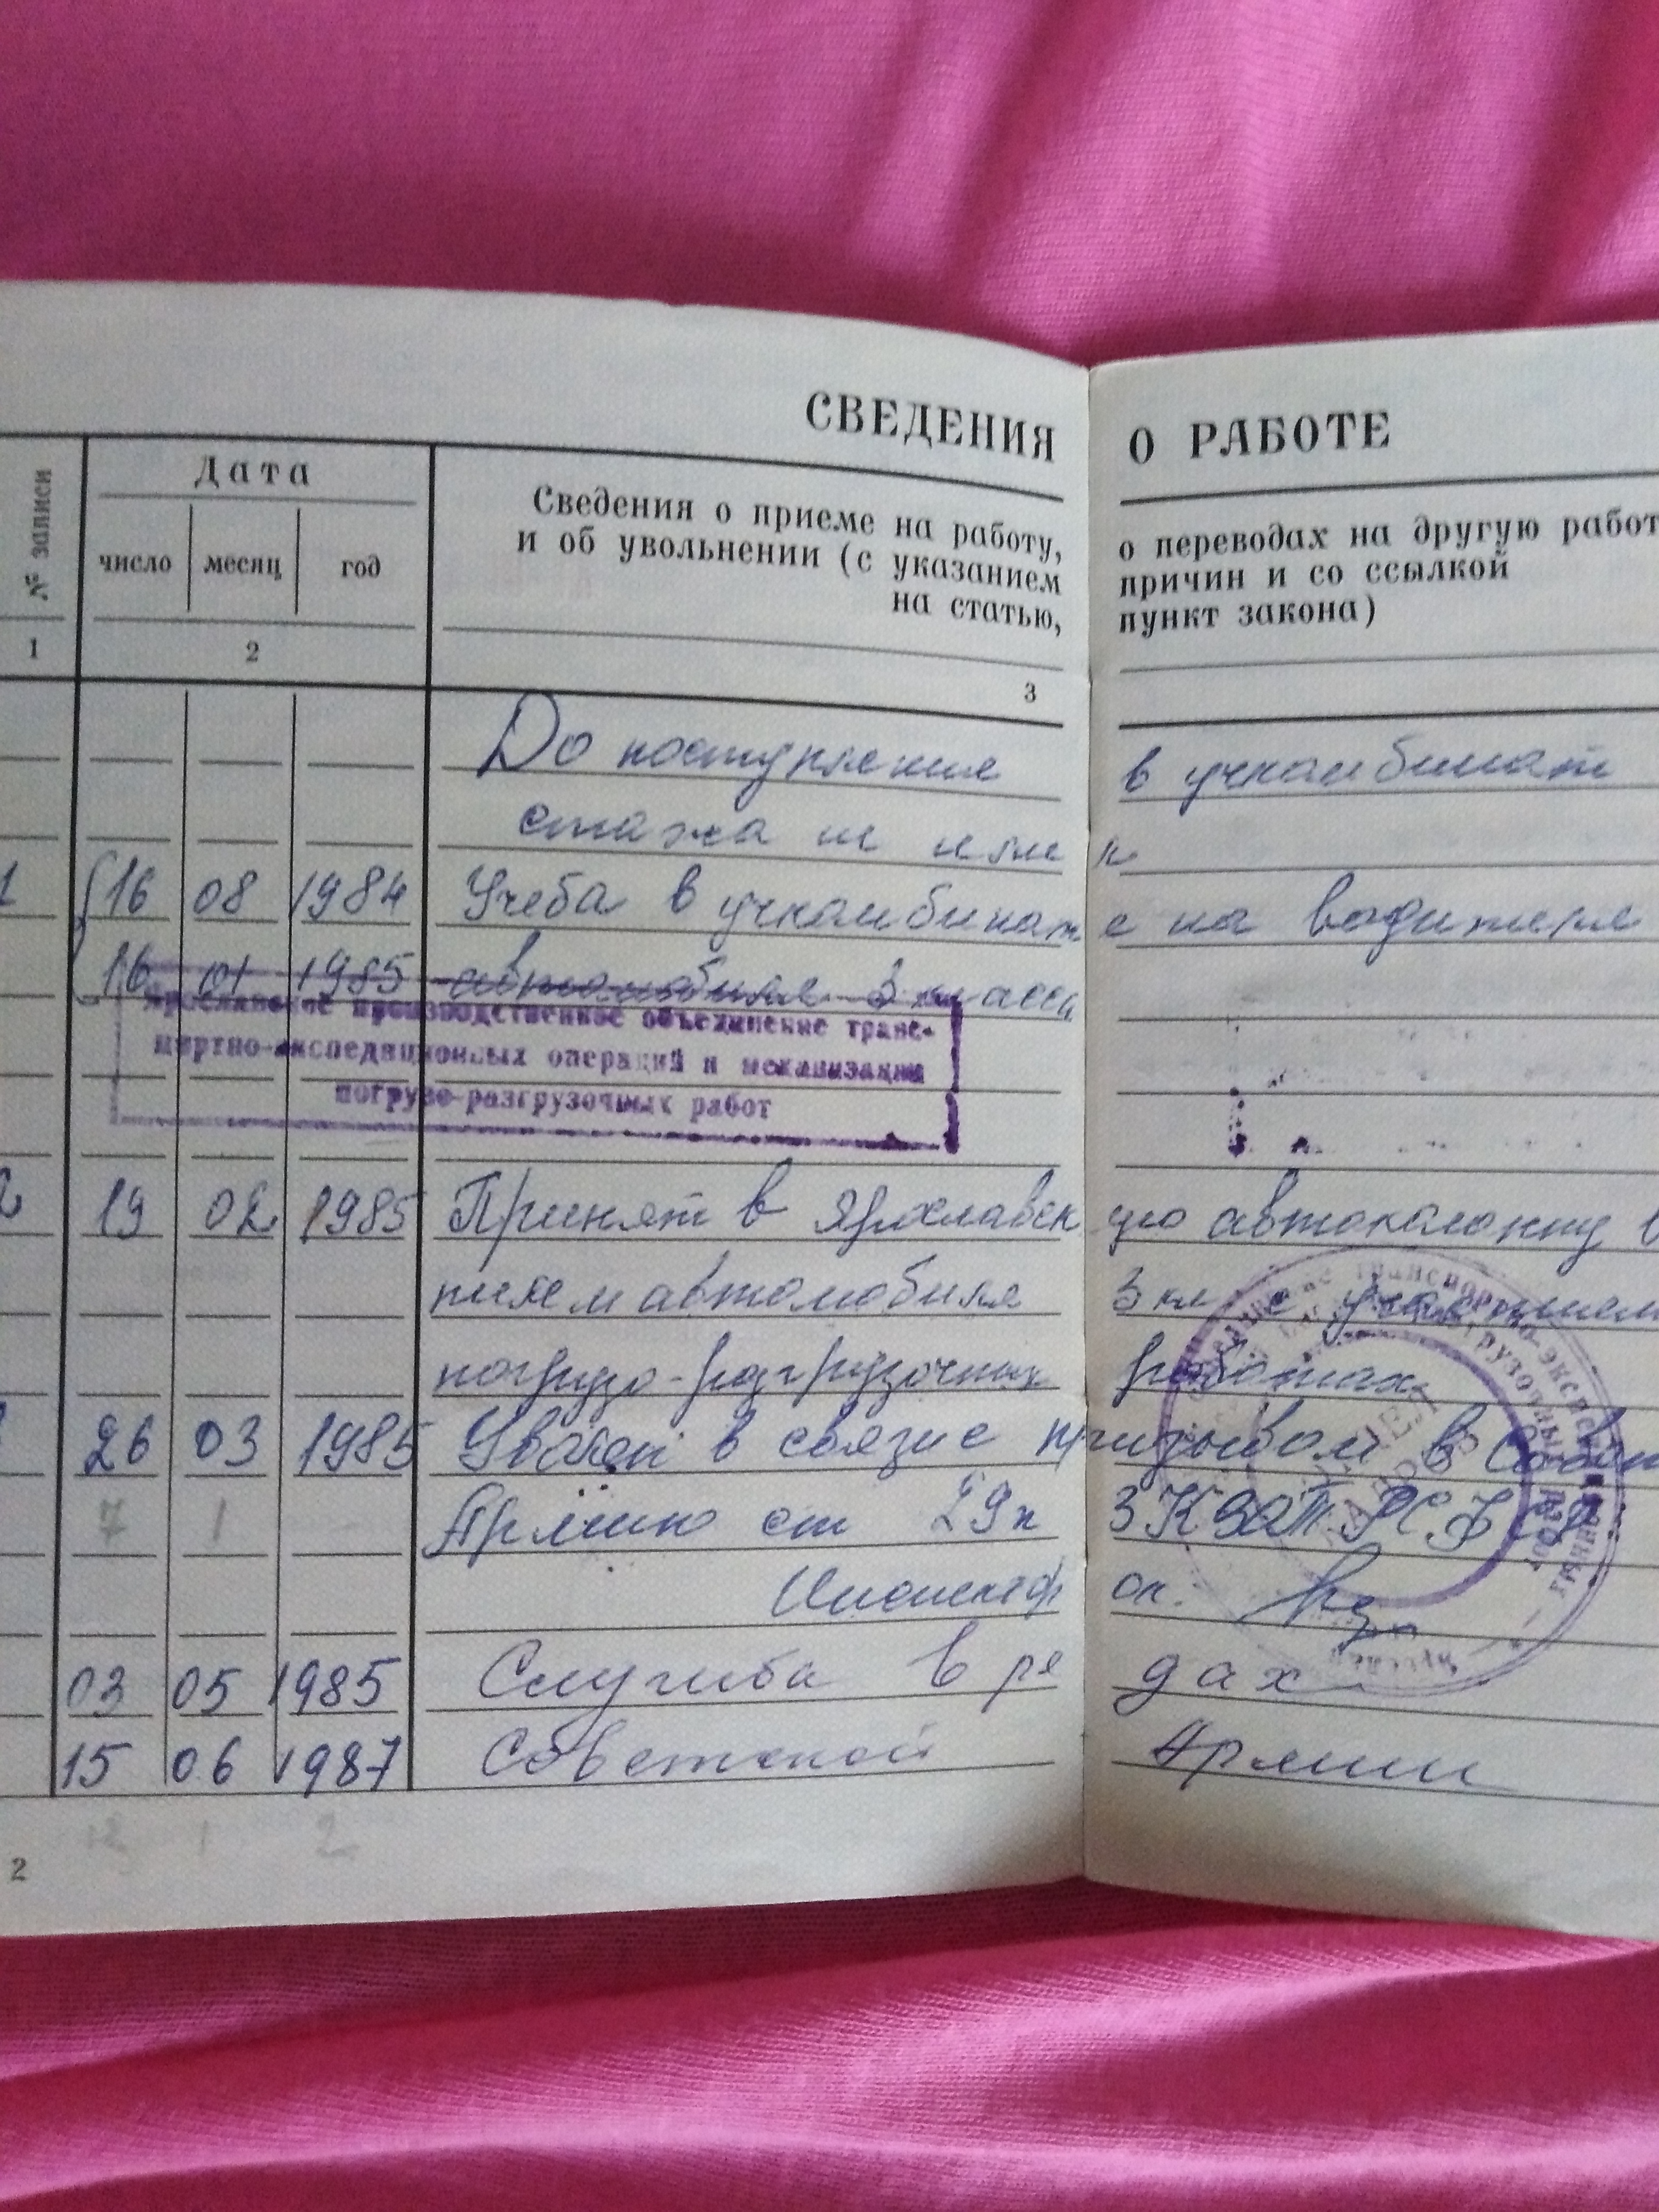 СВЕДЕНИЯ О РАБОТЕ
№ записи
Дата
число месяц год
Сведения о приеме на работу, о переводах на другую работ
и об увольнении (с указанием причин и со ссылкой
на статью, пункт закона)
1 2 3
До поступления в учкомбинат
стажа не имел
1 16 08 1984 Учеба в учкомбинате на водителя
16 01 1985 автомобиля 3 класса
Ярославское производственное объединение транс-
портно-экспедиционных операций и механизации
погрузо-разгрузочных работ
2 19 02 1985 Принят в Ярославскую автоколонну в
автомобиля 3 кл с участием
погрузо-разгрузочных работах
26 03 1985 Уволен в связи с призывом в
7 1
Армию ст 29 п 3 КЗОТ РСФСР
Инспектор ок.
03 05 1985 Служба в рядах
15 06 1987 Советской Армии
12 1 2
2